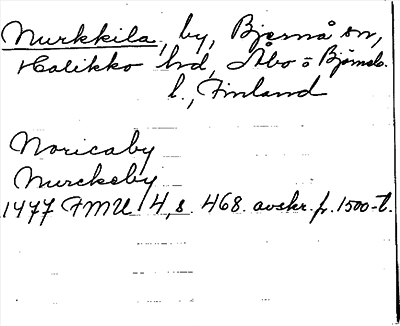 Nurkkila, by, Bjernå sn,
Halikko hd, Åbo o Björneb.
l., Finland
Noricaby
Nurckeby
1477 FMU 4, s. 468. avskr. fr. 1500-t.